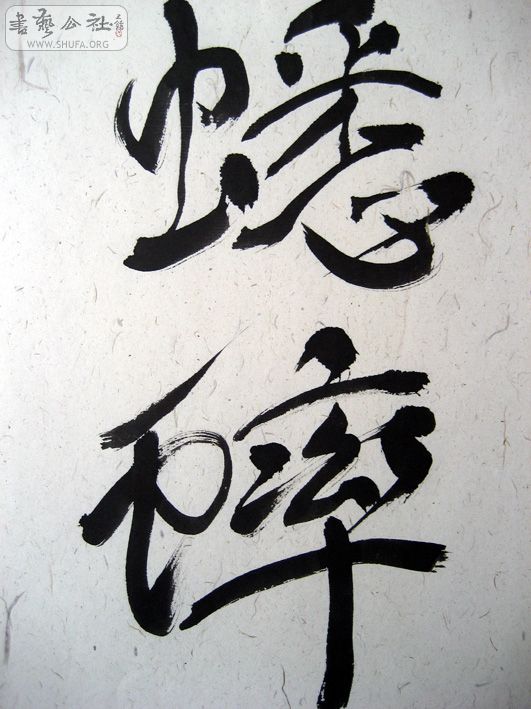 書藝公社
WWW.SHUFA.ORG
蟋蟀